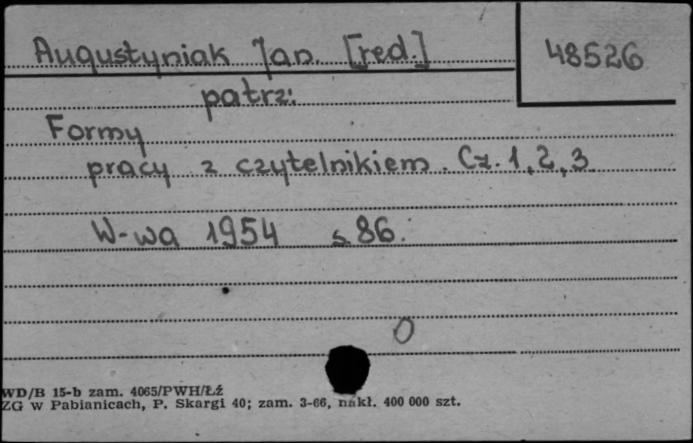 Augustyniak Jan. [red.] 48526
patrz:
Formy
pracy z czytelnikiem. Cz. 1, 2, 3
W-wa 1954 s. 86.
0
WD/B 15-b zam. 4065/PWH/Łź
ZG w Pabianicach, P. Skargi 40; zam. 3-66, nakł. 400 000 szt.